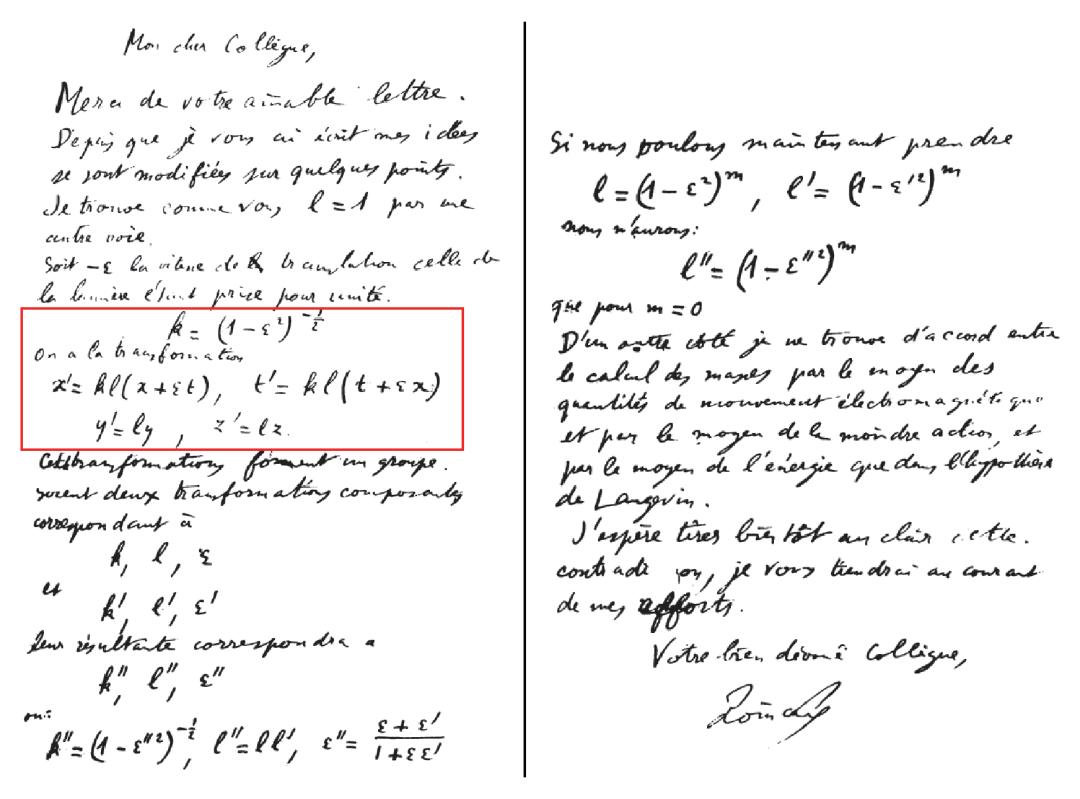 Mon cher Collègue,
Merci de votre aimable lettre.
Depuis que je vous ai écrit mes idées
se sont modifiées sur quelques points.
Je trouve comme vous l = 1 par une
autre voie.
Soit -ε la vitesse de la translation celle de
la lumière étant prise pour unité.
k = (1 - ε²)^{-1/2}
On a la transformation
x' = kl(x + εt), t' = kl(t + εx)
y' = ly, z' = lz.
Ces transformations forment un groupe.
Soient deux transformations composantes
correspondant à
k, l, ε
et
k', l', ε'
leur résultante correspondra a
k'', l'', ε''
où:
k'' = (1 - ε''²)^{-1/2}, l'' = ll', ε'' = (ε + ε')/(1 + εε')
Si nous voulons maintenant prendre
l = (1 - ε²)^m, l' = (1 - ε'²)^m
nous n'aurons:
l'' = (1 - ε''²)^m
que pour m = 0
D'un autre côté je ne trouve d'accord entre
le calcul des masses par le moyen des
quantités de mouvement électromagnétique
et par le moyen de la moindre action, et
par le moyen de l'énergie que dans l'hypothèse
de Langevin.
J'espère tirer bientôt au clair cette
contradiction, je vous tiendrai au courant
de mes efforts.
Votre bien dévoué Collègue,
Poincaré